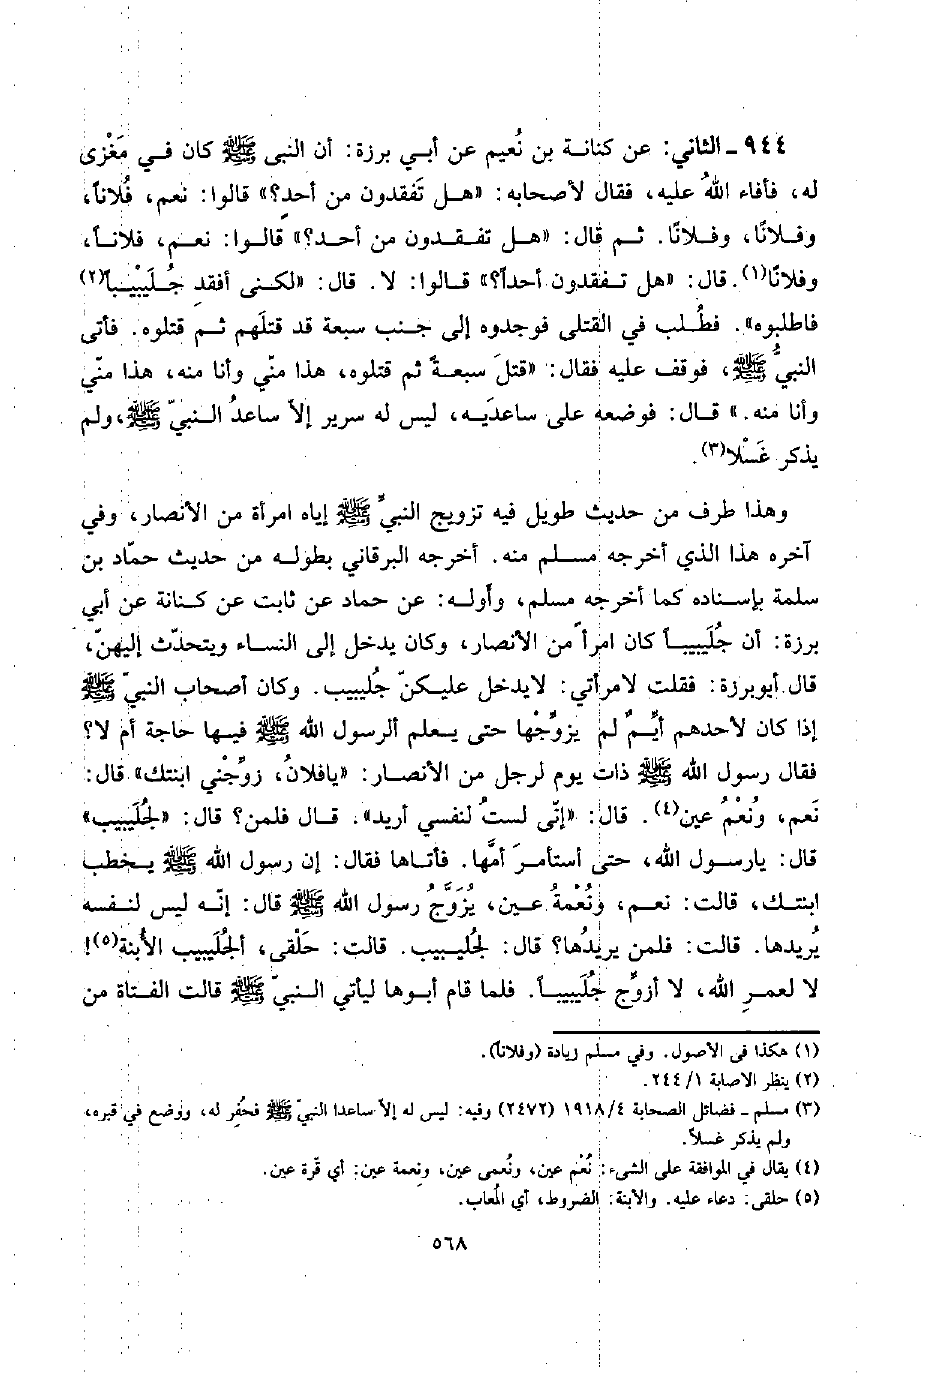 ٩٤٤ ـ الثاني: عن كنانة بن نُعيم عن أبي برزة: أن النبي ﷺ كان في مَغْزى
له، فأفاء اللهُ عليه، فقال لأصحابه: «هل تَفقدون من أحد؟» قالوا: نعم، فُلاناً،
وفلانًا، وفلانًا. ثم قال: «هل تفقدون من أحد؟» قالوا: نعم، فلاناً،
وفلانًا(١). قال: «هل تفقدون أحداً؟» قالوا: لا. قال: «لكنى أفقد جُلَيْبيباً(٢)
فاطلبوه». فطُلب في القتلى فوجدوه إلى جنب سبعة قد قتلَهم ثم قتلوه. فأتى
النبيُّ ﷺ، فوقف عليه فقال: «قتلَ سبعةً ثم قتلوه، هذا منّي وأنا منه، هذا منّي
وأنا منه.» قال: فوضعه على ساعدَيه، ليس له سرير إلاّ ساعدُ النبيّ ﷺ،ولم
يذكر غَسْلا(٣).
وهذا طرف من حديث طويل فيه تزويج النبيِّ ﷺ إياه امرأة من الأنصار، وفي
آخره هذا الذي أخرجه مسلم منه. أخرجه البرقاني بطوله من حديث حمّاد بن
سلمة بإسناده كما أخرجه مسلم، وأوله: عن حماد عن ثابت عن كنانة عن أبي
برزة: أن جُلَيبيباً كان امرأً من الأنصار، وكان يدخل إلى النساء ويتحدّث إليهنّ،
قال أبوبرزة: فقلت لامرأتي: لايدخل عليكنّ جُليبيب. وكان أصحاب النبيّ ﷺ
إذا كان لأحدهم أيِّمٌ لم يزوِّجْها حتى يعلم ألرسول الله ﷺ فيها حاجة أم لا؟
فقال رسول الله ﷺ ذات يوم لرجل من الأنصار: «يافلانُ، زوِّجْني ابنتك» قال:
نَعم، ونُعْمُ عين(٤). قال: «إنّى لستُ لنفسي أريد». قال فلمن؟ قال: «لجُليبيب»
قال: يارسول الله، حتى أستأمرَ أمَّها. فأتاها فقال: إن رسول الله ﷺ يخطب
ابنتك، قالت: نعم، ونُعْمةُ عين، يُزَوَّجُ رسول الله ﷺ قال: إنّه ليس لنفسه
يُريدها. قالت: فلمن يريدُها؟ قال: لجُليبيب. قالت: حَلْقى، ألجُلَيبيب الأُبنة(٥)!
لا لعمرِ الله، لا أزوِّج جُلَيبيباً. فلما قام أبوها ليأتي النبيّ ﷺ قالت الفتاة من
(١) هكذا فى الأصول. وفي مسلم زيادة (وفلاناً).
(٢) ينظر الاصابة ١/ ٢٤٤.
(٣) مسلم ـ فضائل الصحابة ٤/ ١٩١٨ (٢٤٧٢) وفيه: ليس له إلاّ ساعدا النبيّ ﷺ فحُفِر له، ووضع في قبره،
ولم يذكر غسلاً.
(٤) يقال في الموافقة على الشىء: نُعْم عين، ونُعمى عين، ونِعمة عين: أي قرّة عين.
(٥) حلقى: دعاء عليه. والأبنة: الضروط، أي المُعاب.
٥٦٨